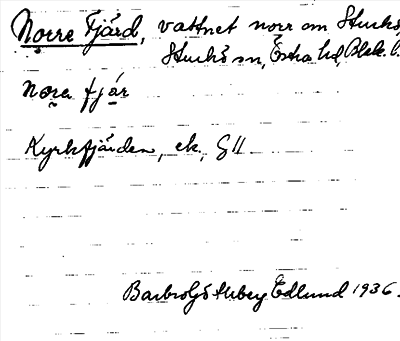 Norre Fjärd, vattnet norr om Sturkö,
Sturkö sn, Östra hd, Blek. l.
nore fjär
Kyrkfjärden, ek, G II
Barbro Söderberg Edlund 1936.